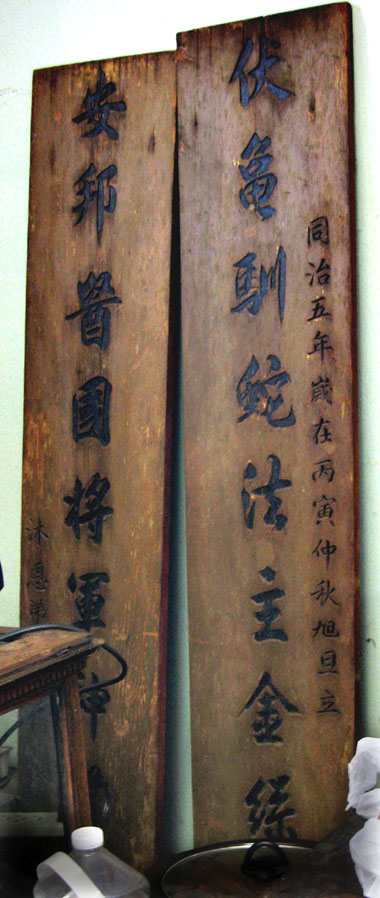 同治五年歲在丙寅仲秋旭旦立
伏亀馴蛇法主金
安邦醫國將軍神
沐恩弟